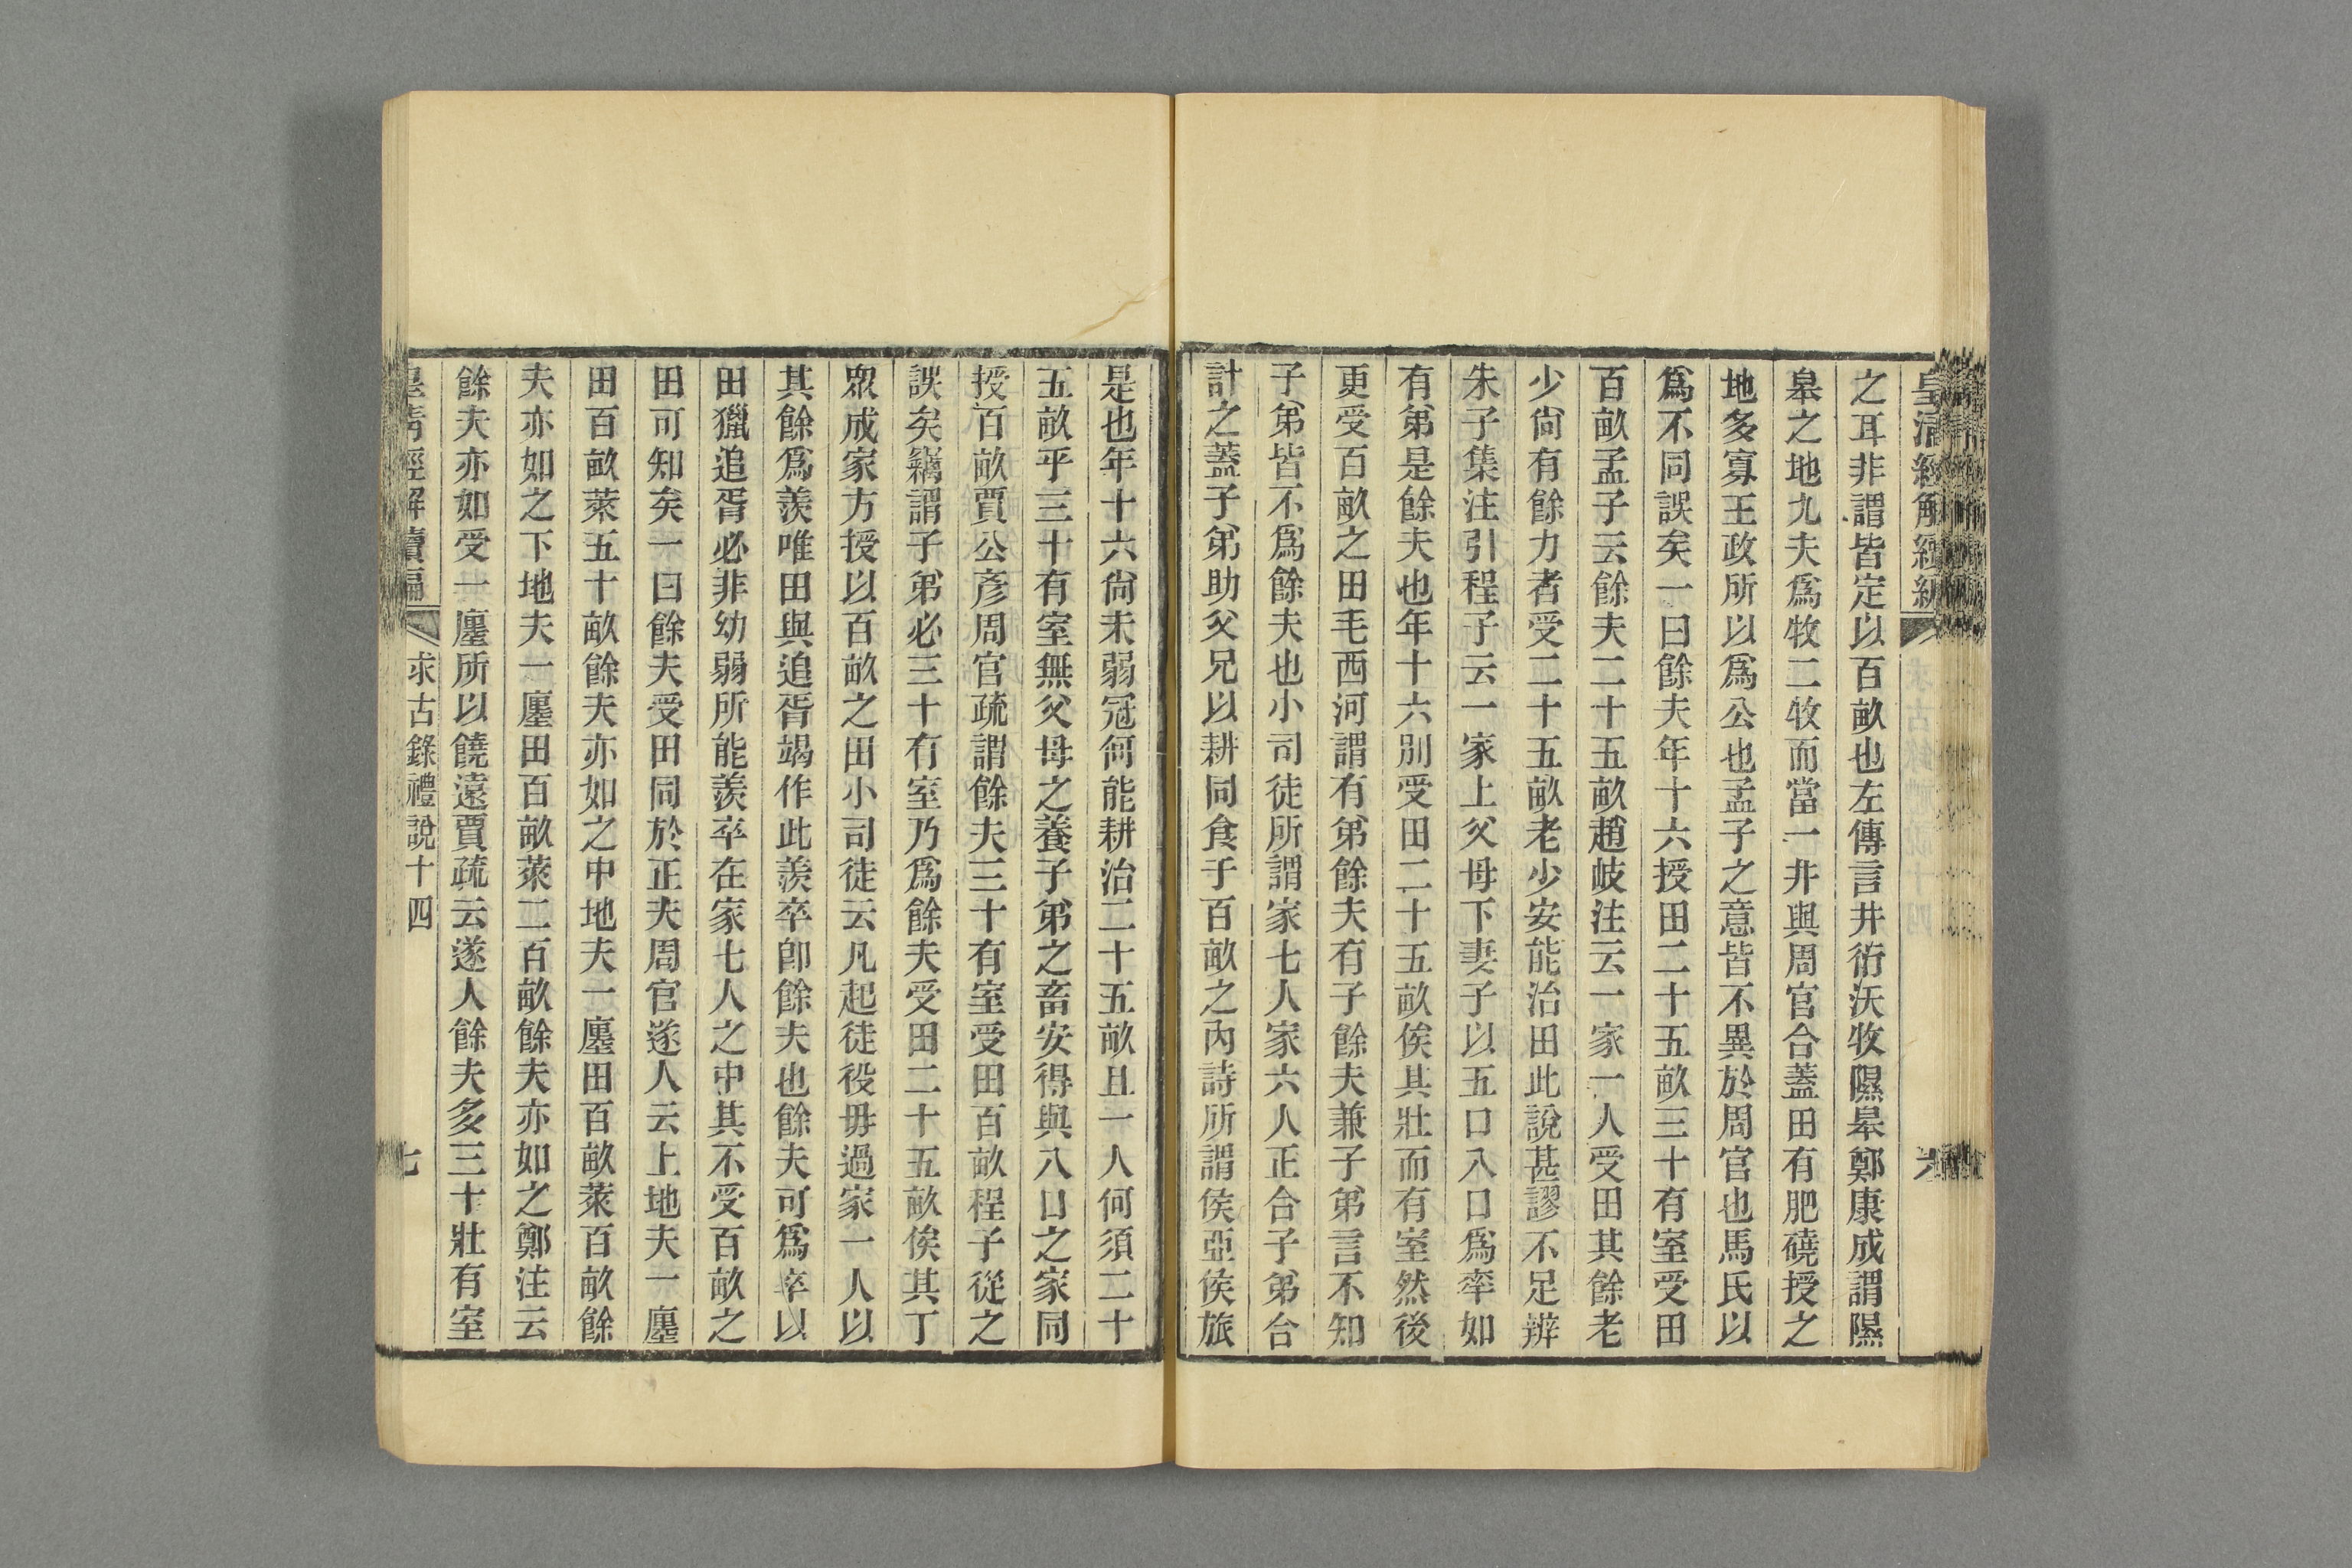 皇清經解續編
六
之耳非謂皆定以百畝也左傳言井衍沃牧隰皋鄭康成謂隰
皋之地九夫爲牧二牧而當一非與周官合蓋田有肥磽授之
地多寡王政所以爲公也孟子之意皆不異於周官也馬氏以
爲不同誤矣一曰餘夫年十六授田二十五畝三十有室受田
百畝孟子云餘夫二十五畝趙岐注云一家一人受田其餘老
少尙有餘力者受二十五畝老少安能治田此說甚謬不足辨
朱子集注引程子云一家上父母下妻子以五口八口爲率如
有弟是餘夫也年十六別受田二十五畝俟其壯而有室然後
更受百畝之田毛西河謂有弟餘夫有子餘夫兼子弟言不知
子弟皆不爲餘夫也小司徒所謂家七人家六人正合子弟合
計之蓋子弟助父兄以耕同食于百畝之內詩所謂侯亞侯旅
是也年十六尙未弱冠何能耕治二十五畝且一人何須二十
五畝乎三十有室無父母之養子弟之畜安得與八口之家同
授百畝賈公彥周官疏謂餘夫三十有室受田百畝程子從之
誤矣竊謂子弟必三十有室乃爲餘夫受田二十五畝俟其丁
眾成家方授以百畝之田小司徒云凡起徒役毋過家一人以
其餘爲羨唯田與追胥竭作此羨卒卽餘夫也餘夫可爲卒以
田獵追胥必非幼弱所能羨卒在家七人之中其不受百畝之
田可知矣一曰餘夫受田同於正夫周官遂人云上地夫一廛
田百畝萊五十畝餘夫亦如之中地夫一廛田百畝萊百畝餘
夫亦如之下地夫一廛田百畝萊二百畝餘夫亦如之鄭注云
餘夫亦如受一廛所以饒遠賈疏云遂人餘夫多三十壯有室
皇清經解續編
求古錄禮說十四
七